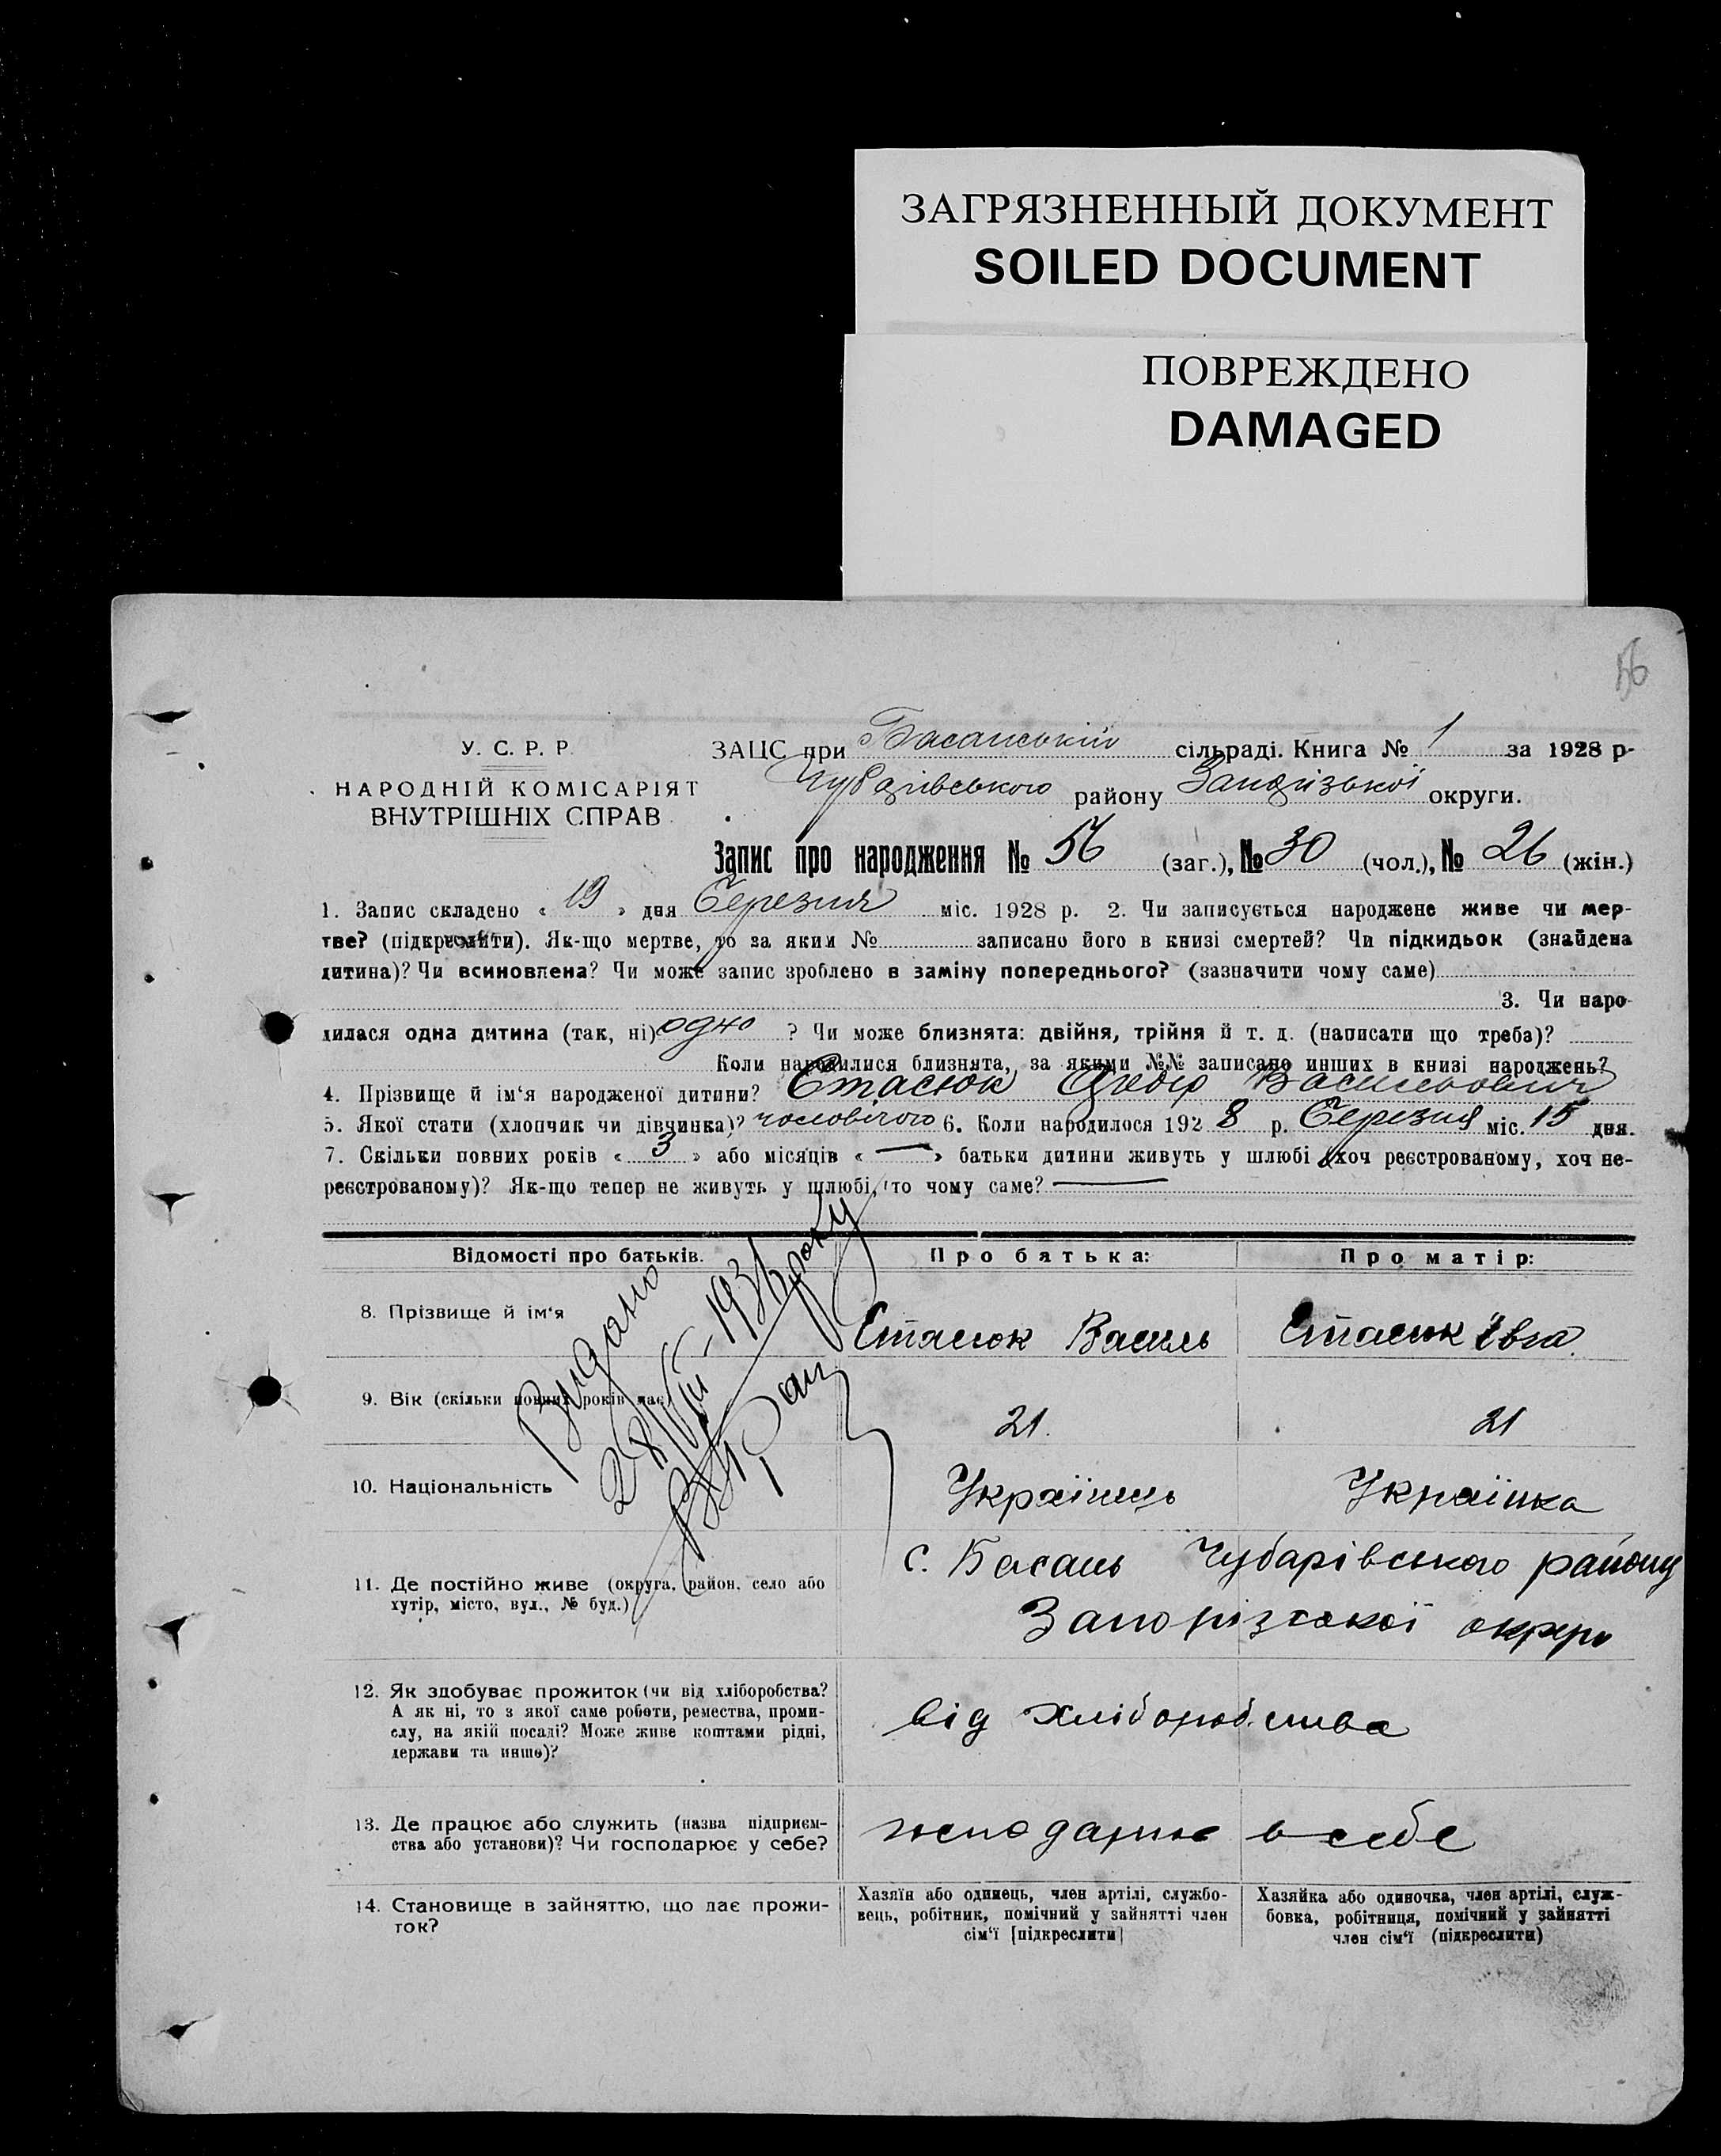 ЗАГРЯЗНЕННЫЙ ДОКУМЕНТ
SOILED DOCUMENT
ПОВРЕЖДЕНО
DAMAGED
56
У. С. Р. Р.
НАРОДНІЙ КОМІСАРІЯТ
ВНУТРІШНІХ СПРАВ
ЗАЦС при Басанській сільраді. Книга № 1 за 1928 р-
Чубарівського району Запорізької округи.
Запис про народження № 56 (заг.), № 30 (чол.), № 26 (жін.)
1. Запис складено « 19 » дня Березня міс. 1928 р. 2. Чи записується народжене живе чи мер-
тве? (підкреслити). Як-що мертве, то за яким № записано його в книзі смертей? Чи підкидьок (знайдена
дитина)? Чи всиновлена? Чи може запис зроблено в заміну попереднього? (зазначити чому саме)
3. Чи наро-
дилася одна дитина (так, ні) одно ? Чи може близнята: двійня, трійня й т. д. (написати що треба)?
Коли народилися близнята, за якими №№ записано инших в книзі народжень?
4. Прізвище й ім‘я народженої дитини? Стасюк Федір Васильович
5. Якої стати (хлопчик чи дівчинка)? чоловічого 6. Коли народилося 192 8 р. Березня міс. 15 дня.
7. Скільки повних років « 3 » або місяців « — » батьки дитини живуть у шлюбі (хоч реєстрованому, хоч не-
реєстрованому)? Як-що тепер не живуть у шлюбі, то чому саме? —
Відомості про батьків.
Про батька:
Про матір:
8. Прізвище й ім‘я
Стасюк Василь
Стасюк Івга.
Видано
року
9. Вік (скільки повних років має)
21.
21
10. Національність
Українець
Українка
11. Де постійно живе (округа, район, село або
хутір, місто, вул., № буд.)
с. Басань Чубарівського району
Запорізської округи
12. Як здобуває прожиток (чи від хліборобства?
А як ні, то з якої саме роботи, ремества, проми-
слу, на якій посаді? Може живе коштами рідні,
держави та инше)?
від хліборобства
13. Де працює або служить (назва підприєм-
ства або установи)? Чи господарює у себе?
господарює в себе
14. Становище в зайняттю, що дає прожи-
ток?
Хазяїн або одинець, член артілі, службо-
вець, робітник, помічний у зайнятті член
сім‘ї [підкреслити]
Хазяйка або одиночка, член артілі, служ-
бовка, робітниця, помічний у зайнятті
член сім‘ї (підкреслити)